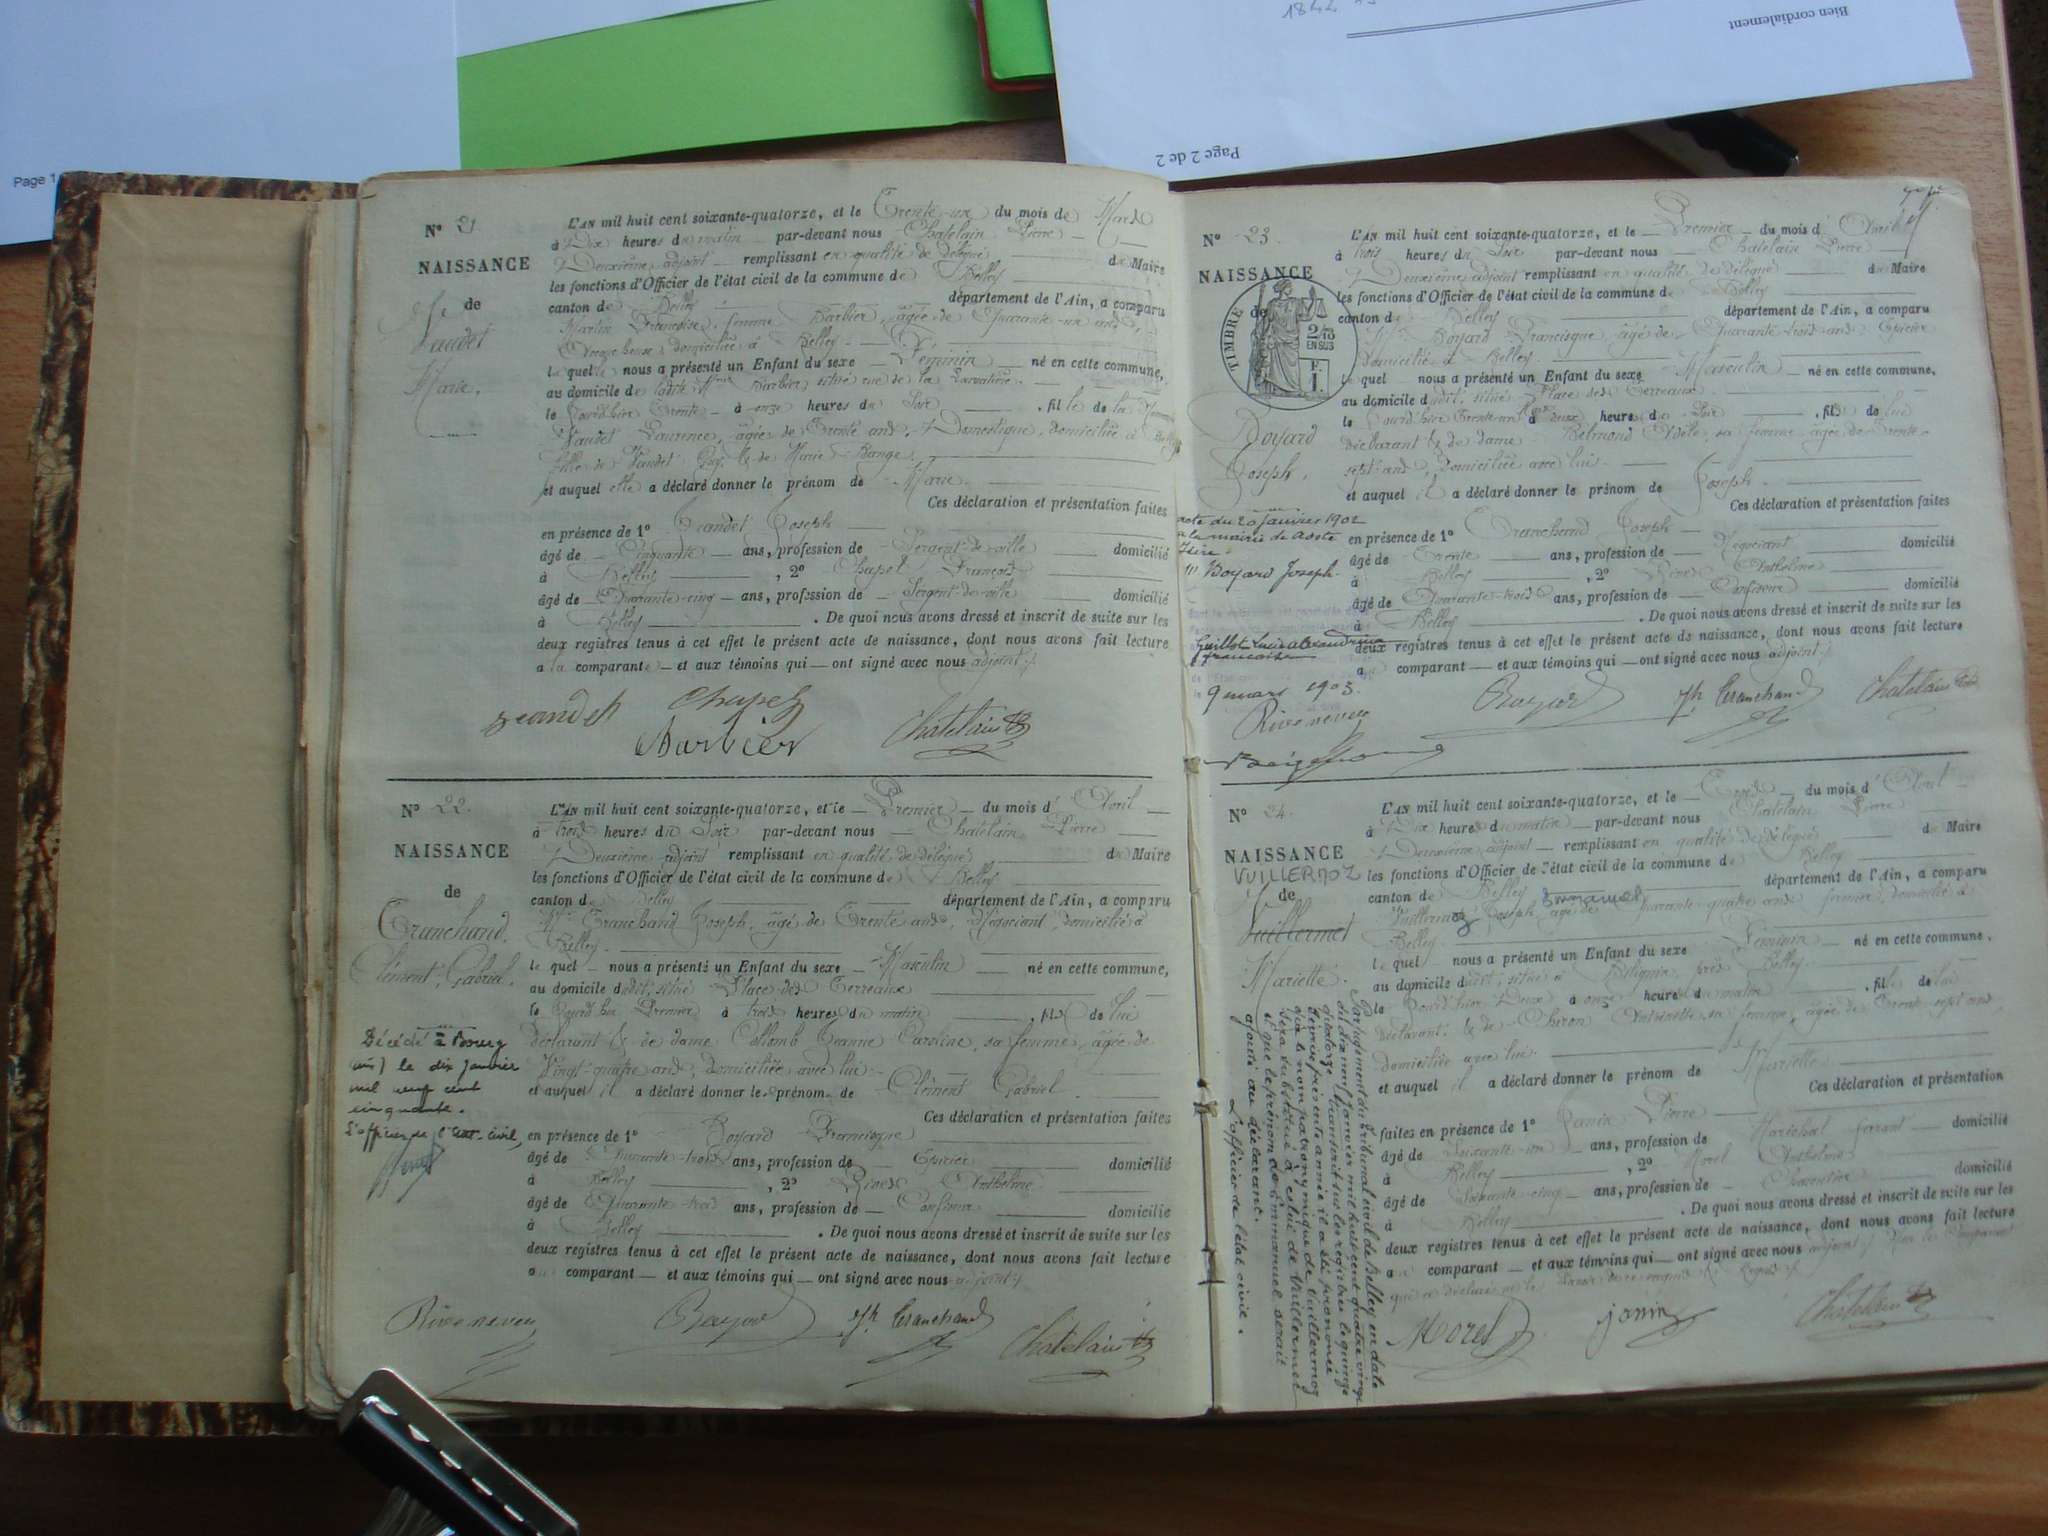 Page 1
1844
Bien cordialement
Page 2 de 2
N° 21.
NAISSANCE
de
Vaudet
Marie.
L'AN mil huit cent soixante-quatorze, et le Trente-un du mois de Mars
à Dix heures du matin par-devant nous Chatelain Pierre
Deuxième adjoint remplissant en qualité de délégué du Maire
les fonctions d'Officier de l'état civil de la commune de Belley
canton de Belley département de l'Ain, a comparu
Martin Françoise, femme Barbier, âgée de Quarante-un ans,
domiciliée à Belley
laquelle nous a présenté un Enfant du sexe Féminin né en cette commune,
au domicile de ladite Barbier, situé rue de la
le jourd'hier Trente à onze heures du Soir, fille de la
Vaudet Laurence, âgée de Trente ans, Domestique, domiciliée à Belley
fille de Vaudet Guy & de Marie Bange.
et auquel elle a déclaré donner le prénom de Marie.
Ces déclaration et présentation faites
en présence de 1° Jeandet Joseph
âgé de Cinquante ans, profession de Sergent-de-ville domicilié
à Belley, 2° Chapel François
âgé de Quarante-cinq ans, profession de Sergent-de-ville domicilié
à Belley. De quoi nous avons dressé et inscrit de suite sur les
deux registres tenus à cet effet le présent acte de naissance, dont nous avons fait lecture
a la comparante et aux témoins qui ont signé avec nous adjoint.
Jeandet Chapel
Barbier Chatelain
N° 22.
NAISSANCE
de
Tranchand,
Clément, Gabriel.
Décédé à Bourg
(ain) le dix janvier
mil neuf cent
cinquante.
L'officier de l'état-civil,
L'AN mil huit cent soixante-quatorze, et le Premier du mois d'Avril
à trois heures du Soir par-devant nous Chatelain Pierre
Deuxième adjoint remplissant en qualité de délégué du Maire
les fonctions d'Officier de l'état civil de la commune de Belley
canton de Belley département de l'Ain, a comparu
Mr Tranchand Joseph, âgé de Trente ans, Négociant, domicilié à
Belley.
lequel nous a présenté un Enfant du sexe Masculin né en cette commune,
au domicile dudit, situé Place des Terreaux
le jourd'hui Premier à trois heures du matin, fils de lui
déclarant & de dame Collomb Jeanne Caroline, sa femme, âgée de
Vingt-quatre ans, domiciliée avec lui
et auquel il a déclaré donner les prénoms de Clément Gabriel.
Ces déclaration et présentation faites
en présence de 1° Boyard Francisque
âgé de Quarante-trois ans, profession de Epicier domicilié
à Belley, 2° Rives Anthelme
âgé de Quarante-trois ans, profession de Confiseur domicilié
à Belley. De quoi nous avons dressé et inscrit de suite sur les
deux registres tenus à cet effet le présent acte de naissance, dont nous avons fait lecture
au comparant et aux témoins qui ont signé avec nous adjoint.
Boyard Jph Tranchand Chatelain
N° 23.
NAISSANCE
de
TIMBRE
2/10
EN SUS
Boyard
Joseph.
acte du 20 janvier 1902
a la mairie de Aoste
Isère
Boyard Joseph
Guillot Lucie alexandrine
francoise
9 mars 1903.
L'AN mil huit cent soixante-quatorze, et le Premier du mois d'Avril
à trois heures du Soir par-devant nous Chatelain Pierre
Deuxième adjoint remplissant en qualité de délégué du Maire
les fonctions d'Officier de l'état civil de la commune de Belley
canton de Belley département de l'Ain, a comparu
Mr Boyard Francisque âgé de Quarante-trois ans Epicier
domicilié à Belley
lequel nous a présenté un Enfant du sexe Masculin né en cette commune,
au domicile dudit, situé Place des Terreaux
le jourd'hier Trente-un à deux heures du Soir, fils de lui
déclarant & de dame Belmond Adèle, sa femme, âgée de trente-
sept ans, domiciliée avec lui.
et auquel il a déclaré donner le prénom de Joseph.
Ces déclaration et présentation faites
en présence de 1° Tranchand Joseph
âgé de Trente ans, profession de Négociant domicilié
à Belley, 2° Rives Anthelme
âgé de Quarante-trois ans, profession de Confiseur domicilié
à Belley. De quoi nous avons dressé et inscrit de suite sur les
deux registres tenus à cet effet le présent acte de naissance, dont nous avons fait lecture
au comparant et aux témoins qui ont signé avec nous adjoint.
Boyard Jph Tranchand Chatelain
N° 24.
NAISSANCE
VUILLERMOZ
de
Vuillermet
Mariette.
L'AN mil huit cent soixante-quatorze, et le Trois du mois d'Avril
à Dix heures du matin par-devant nous Chatelain Pierre
Deuxième adjoint remplissant en qualité de délégué du Maire
les fonctions d'Officier de l'état civil de la commune de Belley
canton de Belley département de l'Ain, a comparu
Emmanuel
Vuillermoz, Joseph, âgé de Quarante-quatre ans fermier, domicilié à
Belley
lequel nous a présenté un Enfant du sexe Féminin né en cette commune,
au domicile dudit, situé à Bilignin, près Belley
le jourd'hier Deux à onze heures du matin, fille de lui
déclarant & de Chiron Antoinette, sa femme, âgée de Trente-sept ans
domiciliée avec lui
et auquel il a déclaré donner le prénom de Mariette
Ces déclaration et présentation
faites en présence de 1° Janin Pierre
âgé de Soixante-un ans, profession de Maréchal ferrant domicilié
à Belley, 2° Morel Anthelme
âgé de Soixante-cinq ans, profession de Charcutier domicilié
à Belley. De quoi nous avons dressé et inscrit de suite sur les
deux registres tenus à cet effet le présent acte de naissance, dont nous avons fait lecture
au comparant et aux témoins qui ont signé avec nous adjoint, non le comparant
qui a déclaré ne le savoir de ce requis
Morel Janin Chatelain
Par jugement du tribunal civil de Belley en date
du dix neuf janvier mil huit cent quatre vingt
quatorze transcrit sur les registres le quinze
février présente année il a été prononcé
que le nom patronymique de Vuillermoz
sera substitué à celui de Vuillermet
et que le prénom de Emmanuel serait
ajouté au déclarant.
L'officier de l'état civil.